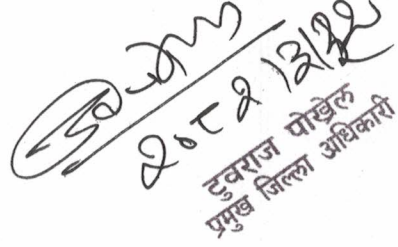 २०८२।३।३२
टुवराज पोखरेल
प्रमुख जिल्ला अधिकारी